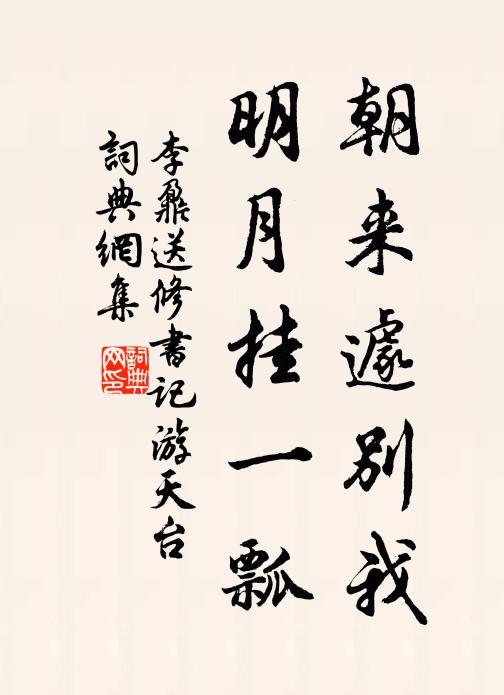 朝来遽别我
明月挂一瓢
李鼐送修書记游天台
詞典網集
詞典网印